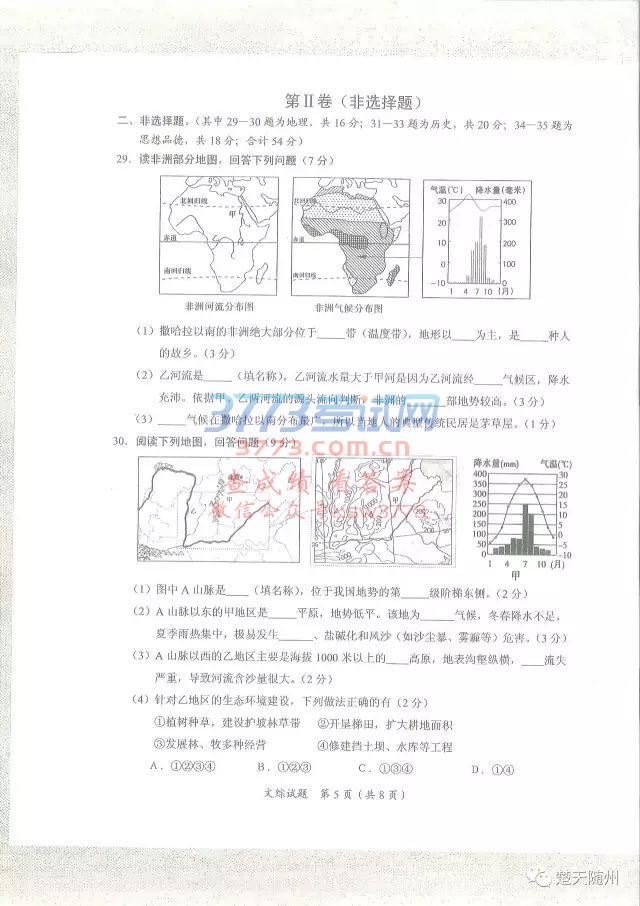 第Ⅱ卷（非选择题）
二、非选择题。（其中 29—30 题为地理，共 16 分；31—33 题为历史，共 20 分；34—35 题为
思想品德，共 18 分；合计 54 分）
29．读非洲部分地图，回答下列问题（7 分）
北回归线
甲
赤道
南回归线
非洲河流分布图
北回归线
赤道
南回归线
非洲气候分布图
气温(℃) 降水量(毫米)
30 400
20 300
10 200
0 100
-10 0
1 4 7 10 (月)
（1）撒哈拉以南的非洲绝大部分位于____带（温度带），地形以____为主，是____种人
的故乡。（3 分）
（2）乙河流是____（填名称），乙河流水量大于甲河是因为乙河流经____气候区，降水
充沛。依据甲、乙两河流的源头流向判断，非洲的____部地势较高。（3 分）
（3）____气候在撒哈拉以南分布最广，所以当地人的典型传统民居是茅草屋。（1 分）
3773考试网
3773.com.cn
查成绩 看答案
30．阅读下列地图，回答问题（9 分）
乙
甲
甲
1000
200
200
1000
36°
降水量(mm) 气温(℃)
400 30
350 25
300 20
250 15
200 10
150 5
100 0
50 -5
0 -10
1 4 7 10 (月)
甲
（1）图中 A 山脉是____（填名称），位于我国地势的第____级阶梯东侧。（2 分）
（2）A 山脉以东的甲地区是____平原，地势低平。该地为____气候，冬春降水不足，
夏季雨热集中，极易发生____、盐碱化和风沙（如沙尘暴、雾霾等）危害。（3 分）
（3）A 山脉以西的乙地区主要是海拔 1000 米以上的____高原，地表沟壑纵横，____流失
严重，导致河流含沙量很大。（2 分）
（4）针对乙地区的生态环境建设，下列做法正确的有（2 分）
①植树种草，建设护坡林草带 ②开垦梯田，扩大耕地面积
③发展林、牧多种经营 ④修建挡土坝、水库等工程
A．①②③④ B．①②③ C．①③④ D．①④
文综试题 第 5 页（共 8 页）
楚天随州